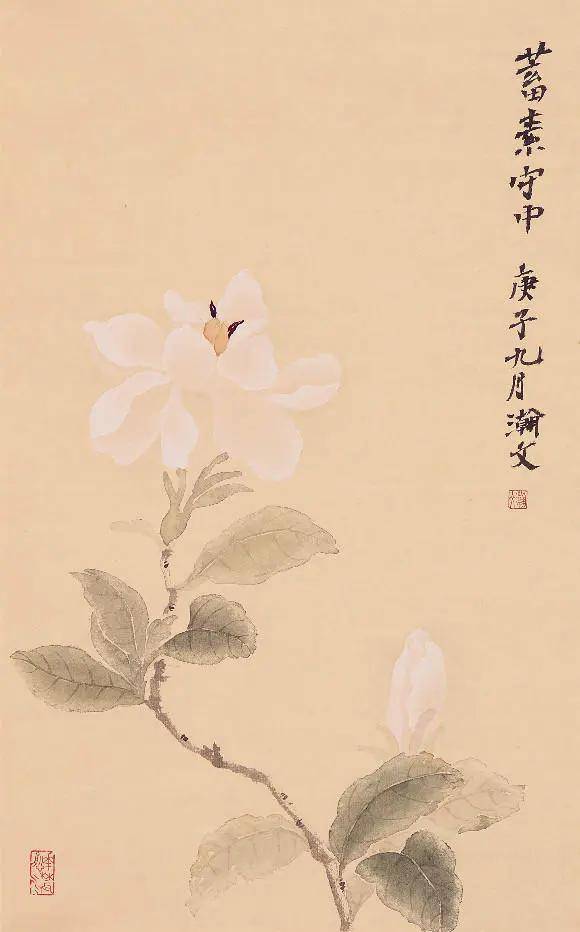 蓄素守中 庚子九月瀚文